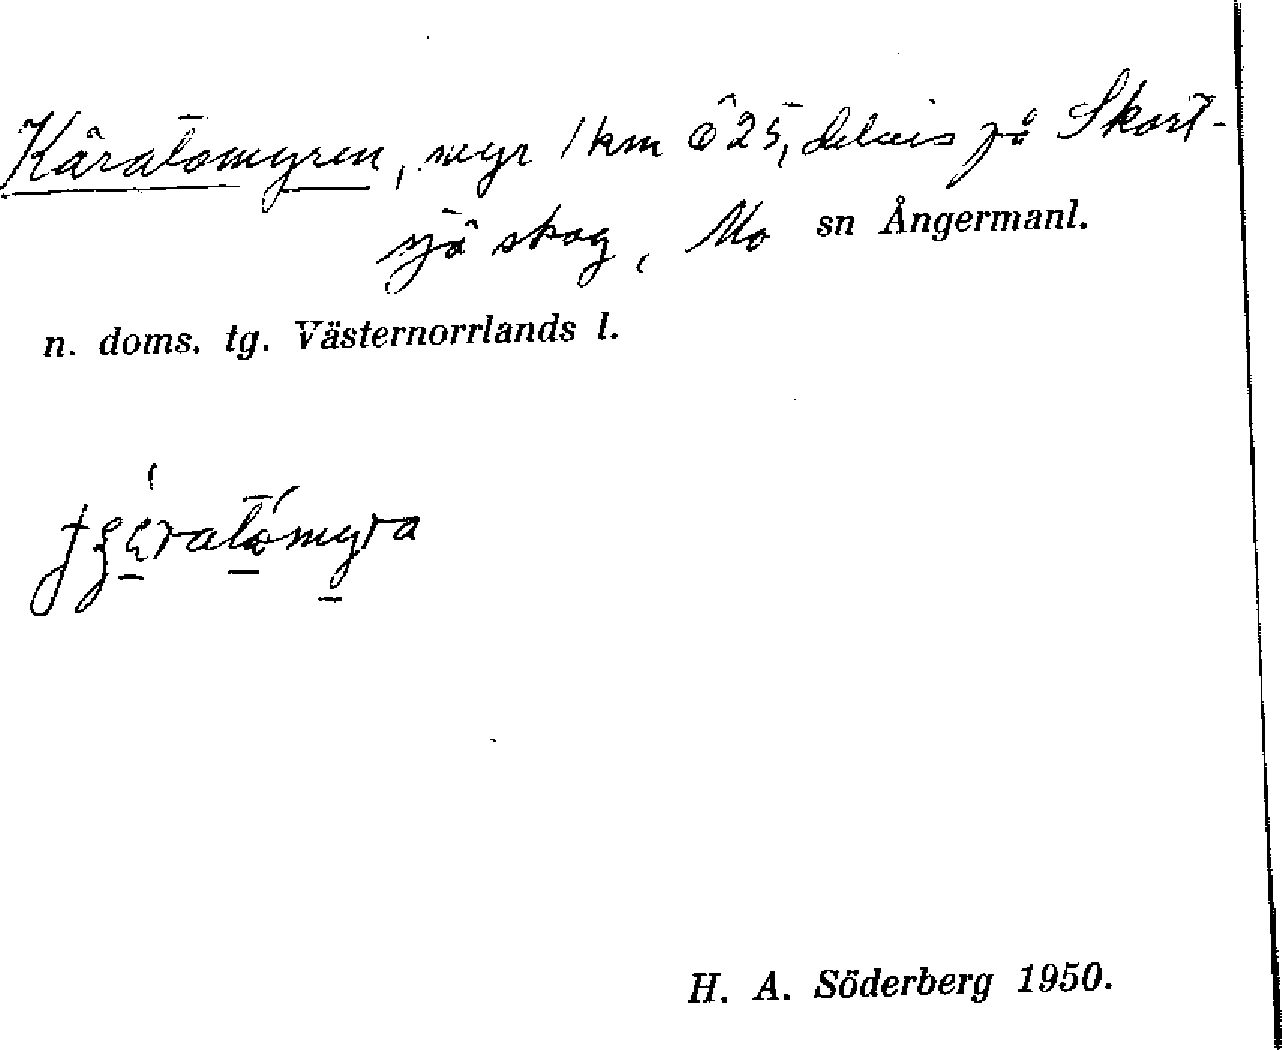 Käratomyren, myr 1 km Ö 25, delvis på Skort-
sjö skog, Mo sn Ångermanl.
n. doms. tg. Västernorrlands l.
H. A. Söderberg 1950.